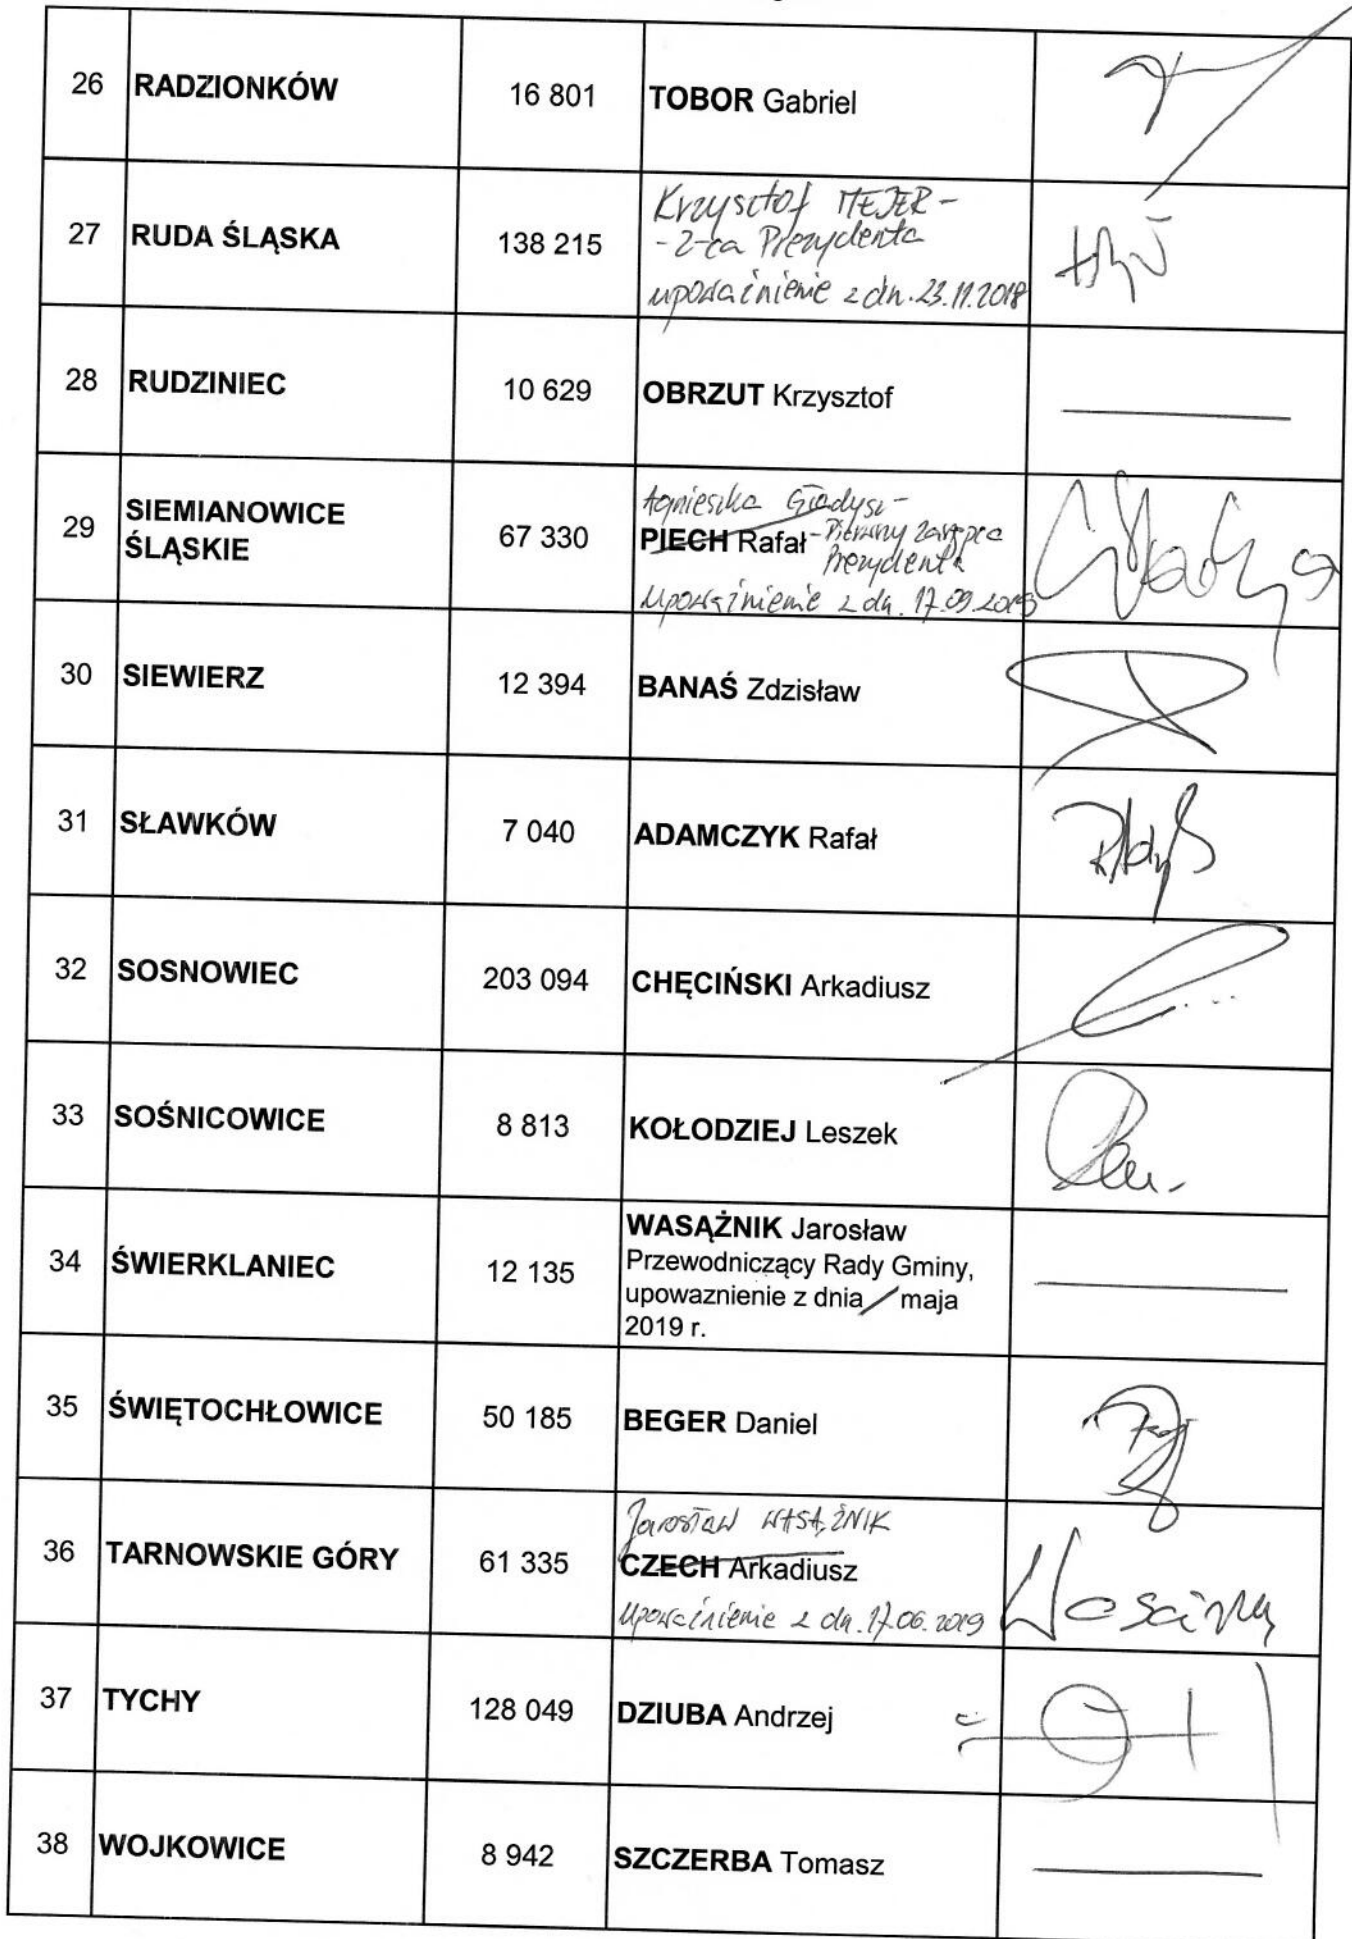 26 RADZIONKÓW 16 801 TOBOR Gabriel
27 RUDA ŚLĄSKA 138 215 Krzysztof MEJER -
- Z-ca Prezydenta
upoważnienie z dn. 23.11.2018
28 RUDZINIEC 10 629 OBRZUT Krzysztof
29 SIEMIANOWICE
ŚLĄSKIE 67 330 Agnieszka Gładysz -
PIECH Rafał - Pierwszy zastępca
Prezydenta
Upoważnienie z dn. 17.09.2019
30 SIEWIERZ 12 394 BANAŚ Zdzisław
31 SŁAWKÓW 7 040 ADAMCZYK Rafał
32 SOSNOWIEC 203 094 CHĘCIŃSKI Arkadiusz
33 SOŚNICOWICE 8 813 KOŁODZIEJ Leszek
34 ŚWIERKLANIEC 12 135 WASĄŻNIK Jarosław
Przewodniczący Rady Gminy,
upowaznienie z dnia maja
2019 r.
35 ŚWIĘTOCHŁOWICE 50 185 BEGER Daniel
36 TARNOWSKIE GÓRY 61 335 Jarosław WASĄŻNIK
CZECH Arkadiusz
Upoważnienie z dn. 17.06.2019
37 TYCHY 128 049 DZIUBA Andrzej
38 WOJKOWICE 8 942 SZCZERBA Tomasz